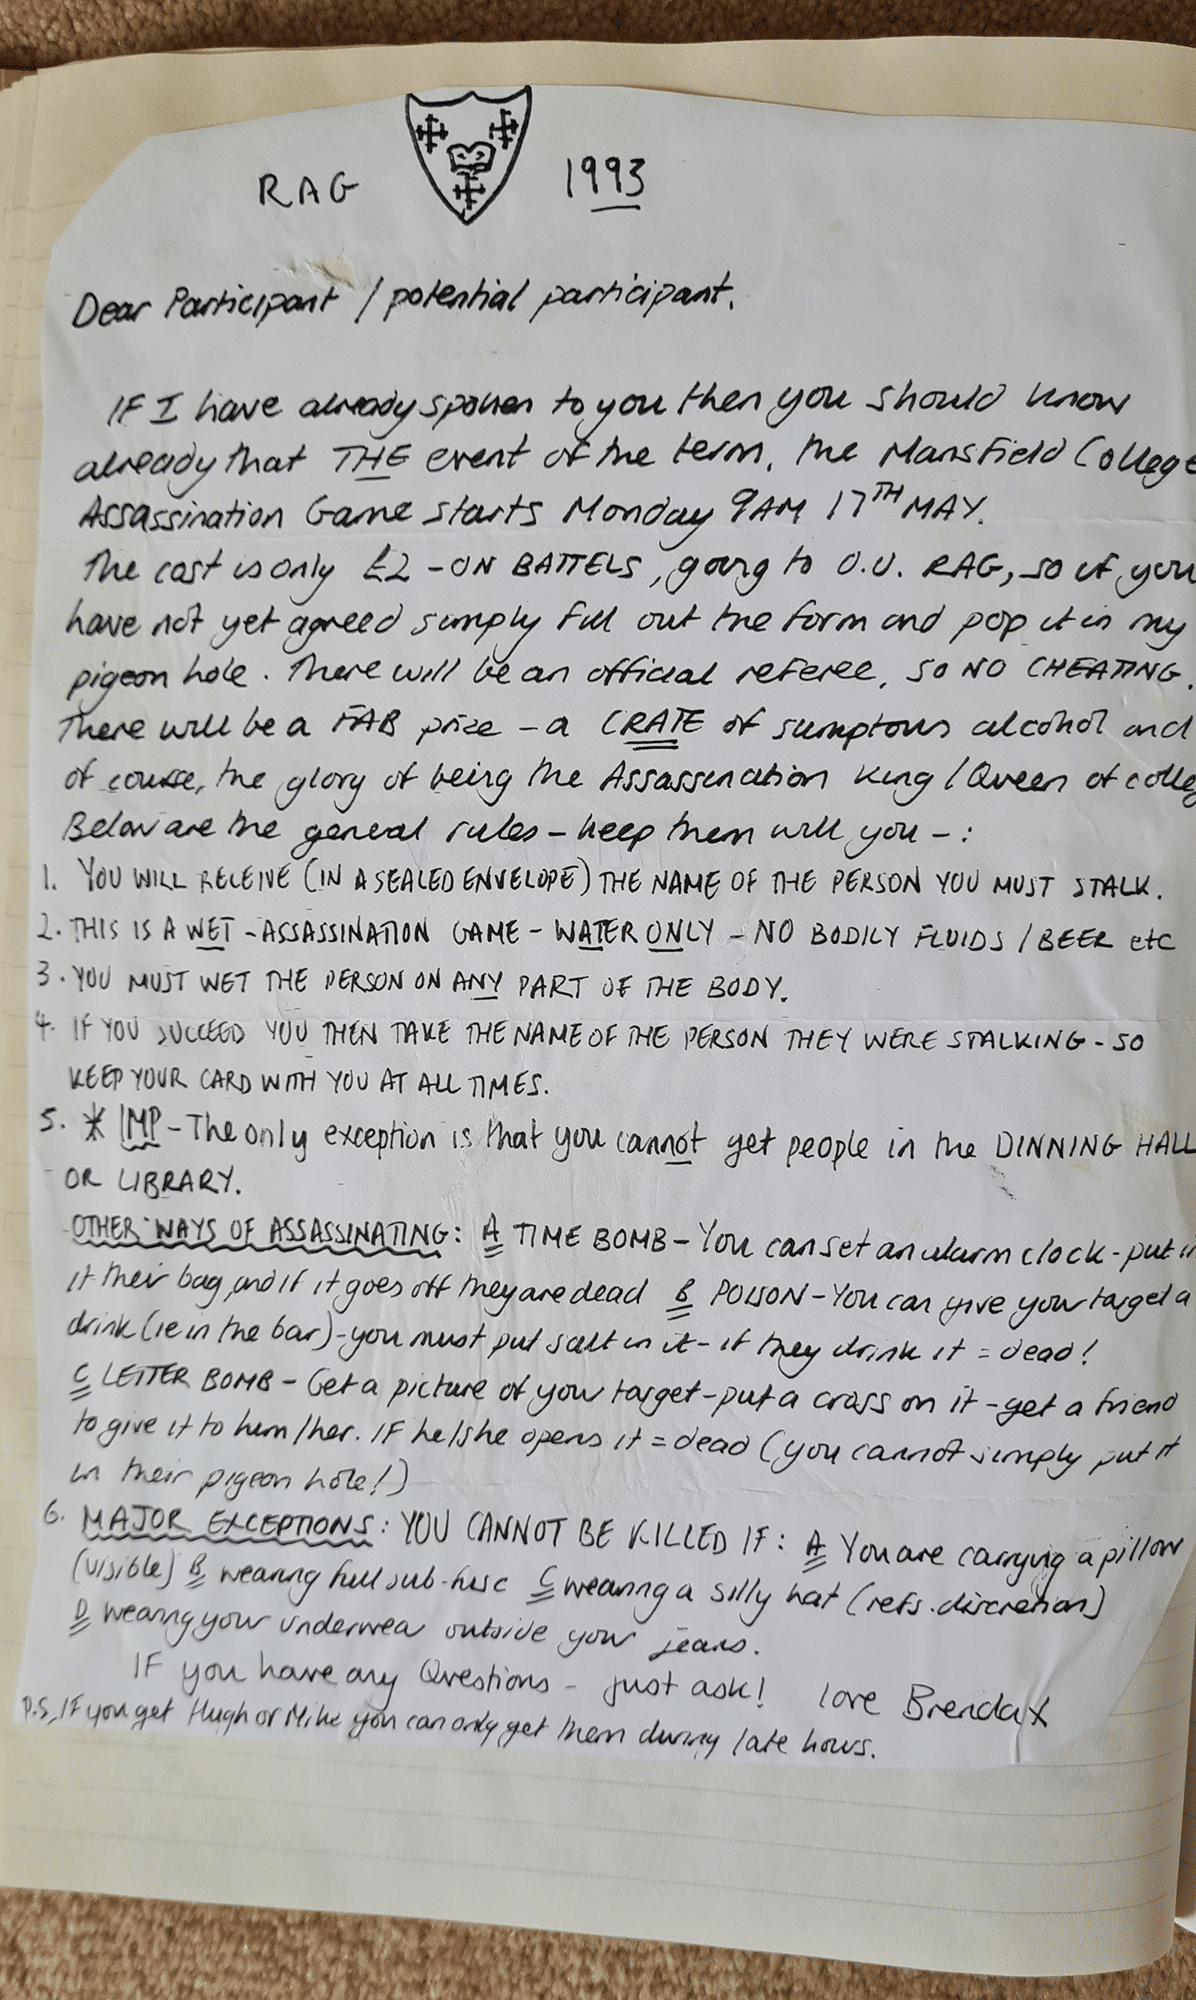 RAG 1993
Dear Participant / potential participant,
IF I have already spoken to you then you should know
already that THE event of the term, the Mansfield College
Assassination Game starts Monday 9AM 17TH MAY.
The cost is only £2 - ON BATTELS, going to O.U. RAG, so if you
have not yet agreed simply fill out the form and pop it in my
pigeon hole. There will be an official referee, SO NO CHEATING.
There will be a FAB prize - a CRATE of sumptous alcohol and
of course, the glory of being the Assassination King / Queen of colleg
Below are the general rules - keep them will you - :
1. YOU WILL RECEIVE (IN A SEALED ENVELOPE) THE NAME OF THE PERSON YOU MUST STALK.
2. THIS IS A WET - ASSASSINATION GAME - WATER ONLY - NO BODILY FLUIDS / BEER etc
3. YOU MUST WET THE PERSON ON ANY PART OF THE BODY.
4. IF YOU SUCCEED YOU THEN TAKE THE NAME OF THE PERSON THEY WERE STALKING - SO
KEEP YOUR CARD WITH YOU AT ALL TIMES.
5. * IMP - The only exception is that you cannot get people in the DINNING HALL
OR LIBRARY.
OTHER WAYS OF ASSASSINATING: A TIME BOMB - You can set an alarm clock - put in
it their bag, and if it goes off they are dead B POISON - You can give your target a
drink (ie in the bar) - you must put salt in it - if they drink it = dead!
C LETTER BOMB - Get a picture of your target - put a cross on it - get a friend
to give it to him/her. IF he/she opens it = dead (you cannot simply put it
in their pigeon hole!)
6. MAJOR EXCEPTIONS: YOU CANNOT BE KILLED IF: A You are carrying a pillow
(visible) B wearing full sub-fusc C wearing a silly hat (refs. discretion)
D wearing your underwear outside your jeans.
IF you have any Questions - just ask! love Brenda x
P.S. IF you get Hugh or Mike you can only get them during late hours.